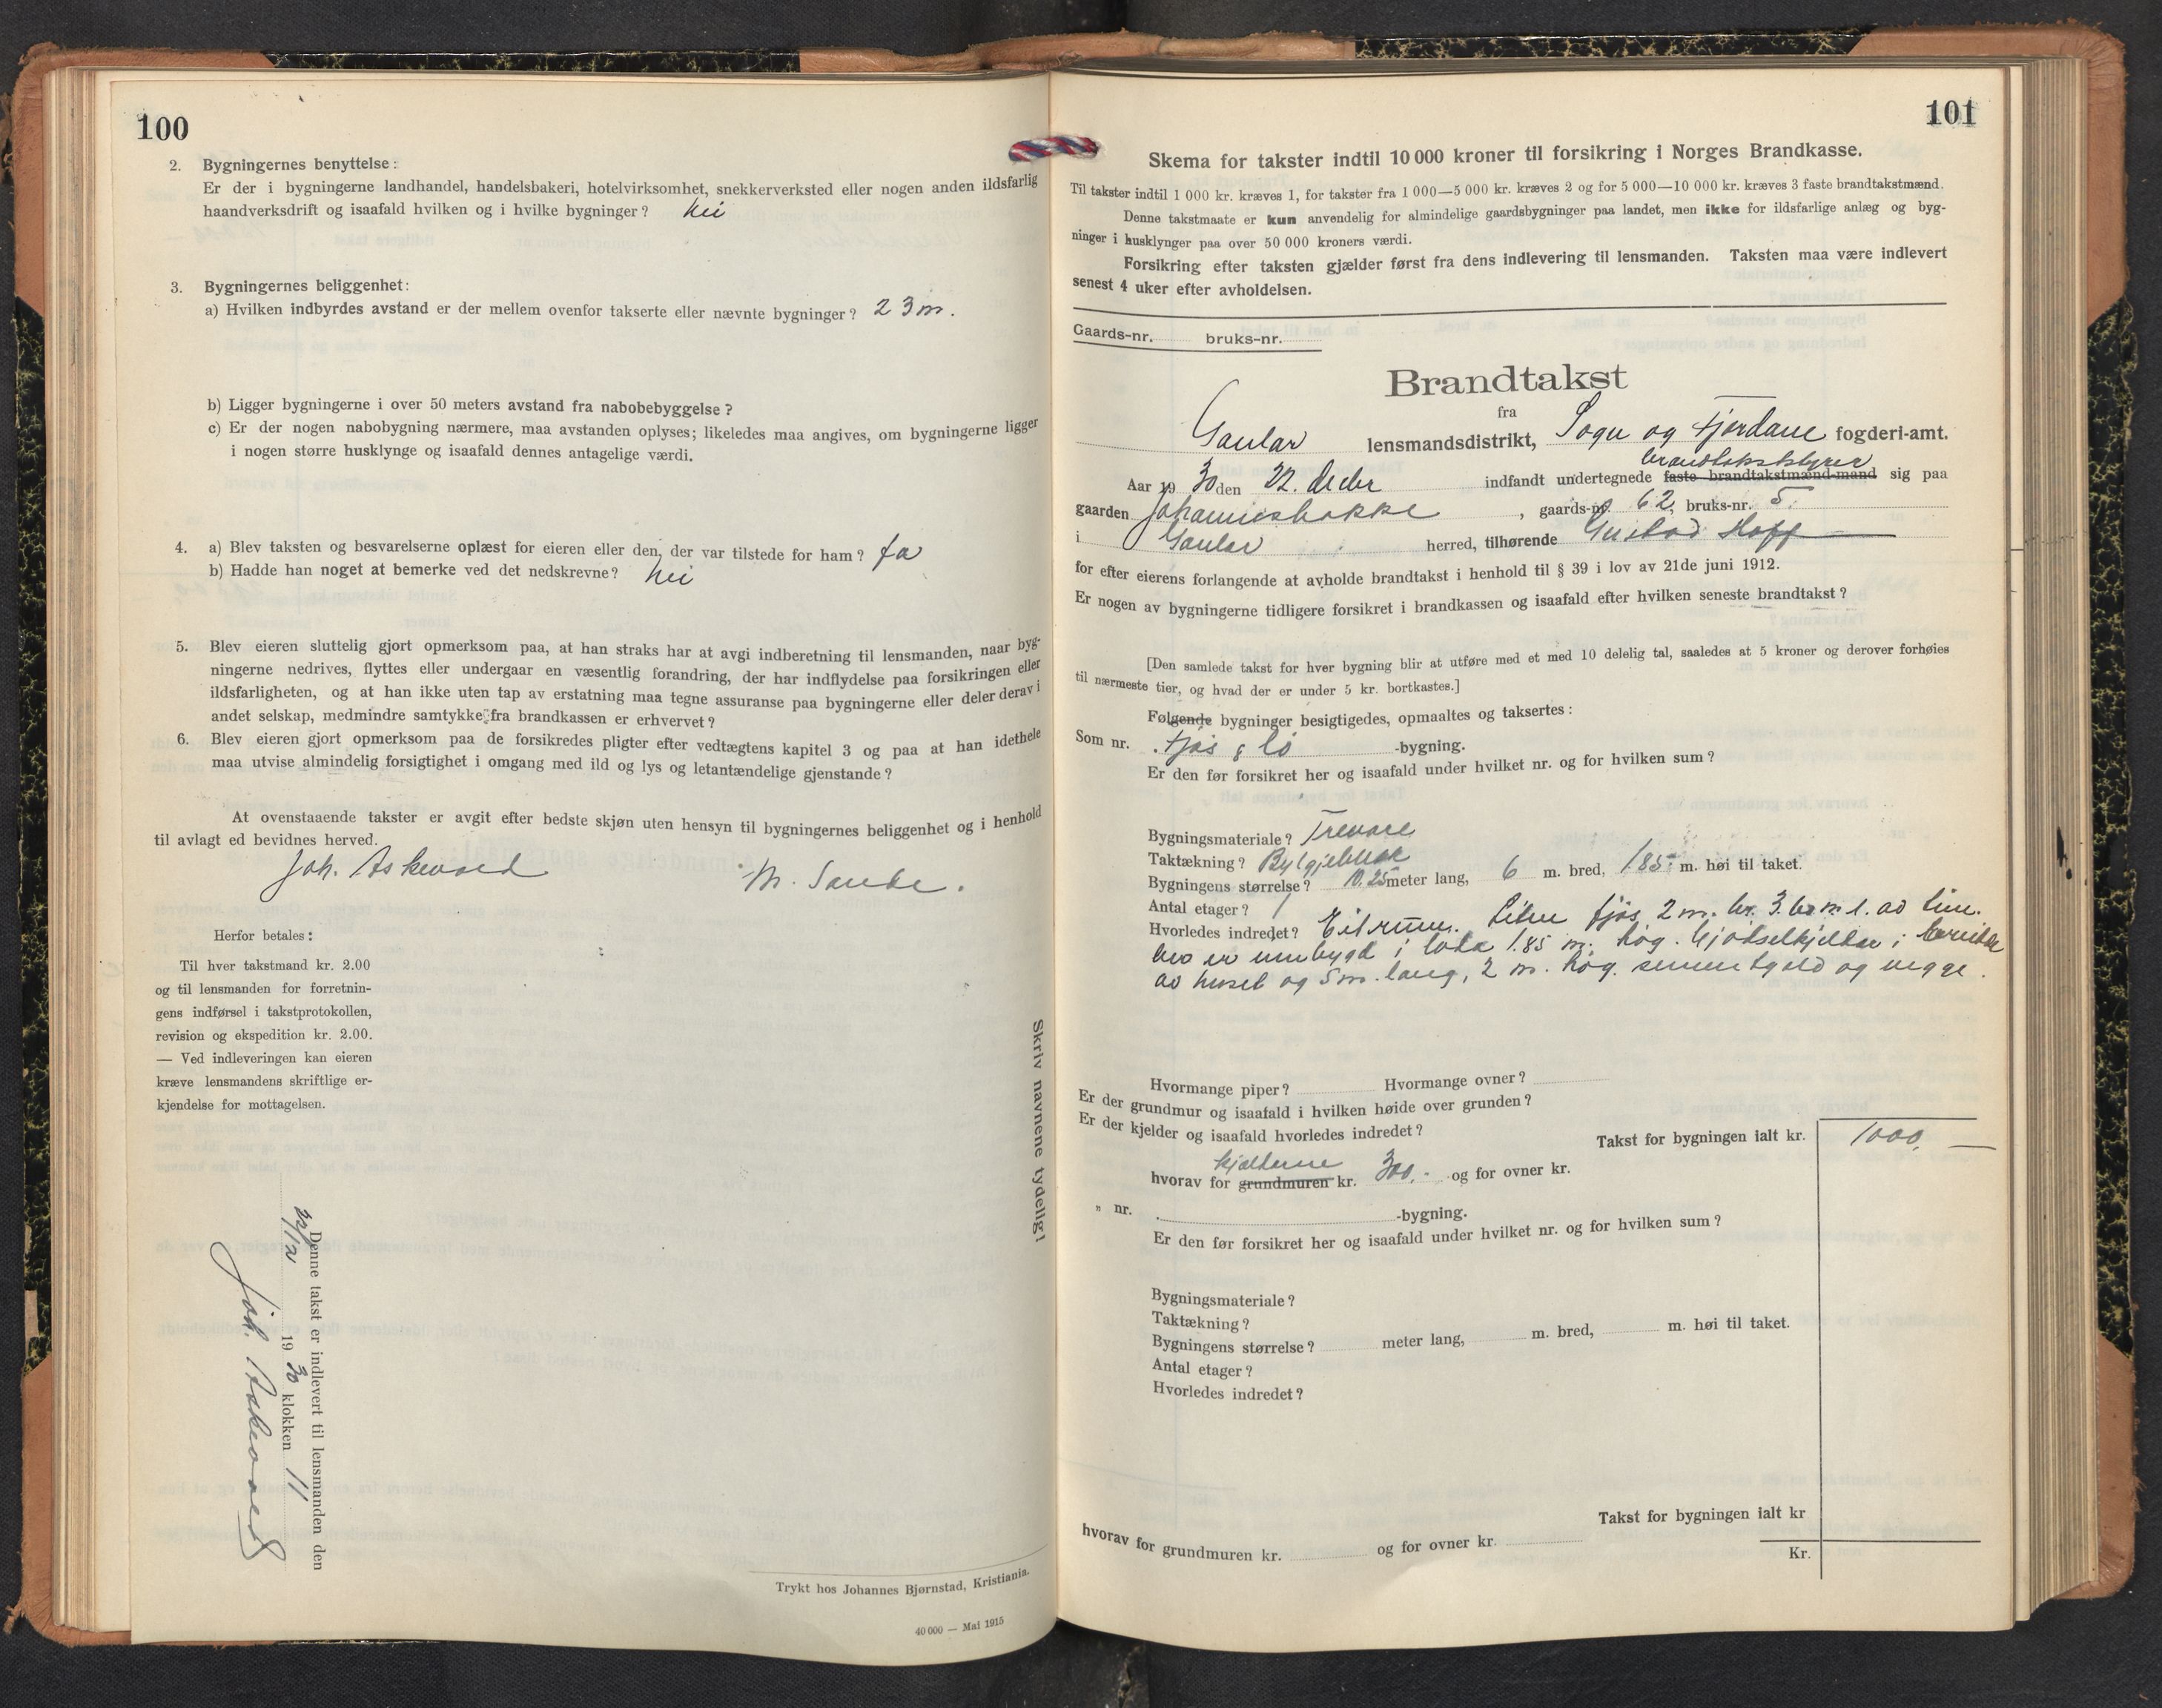 100
2. Bygningernes benyttelse:
Er der i bygningerne landhandel, handelsbakeri, hotelvirksomhet, snekkerverksted eller nogen anden ildsfarlig
haandverksdrift og isaafald hvilken og i hvilke bygninger? Nei
3. Bygningernes beliggenhet:
a) Hvilken indbyrdes avstand er der mellem ovenfor takserte eller nævnte bygninger? 23 m.
b) Ligger bygningerne i over 50 meters avstand fra nabobebyggelse?
c) Er der nogen nabobygning nærmere, maa avstanden oplyses; likeledes maa angives, om bygningerne ligger
i nogen større husklynge og isaafald dennes antagelige værdi.
4. a) Blev taksten og besvarelserne oplæst for eieren eller den, der var tilstede for ham? Ja
b) Hadde han noget at bemerke ved det nedskrevne? Nei
5. Blev eieren sluttelig gjort opmerksom paa, at han straks har at avgi indberetning til lensmanden, naar byg-
ningerne nedrives, flyttes eller undergaar en væsentlig forandring, der har indflydelse paa forsikringen eller
ildsfarligheten, og at han ikke uten tap av erstatning maa tegne assuranse paa bygningerne eller deler derav i
andet selskap, medmindre samtykke fra brandkassen er erhvervet?
6. Blev eieren gjort opmerksom paa de forsikredes pligter efter vedtægtens kapitel 3 og paa at han idethele
maa utvise almindelig forsigtighet i omgang med ild og lys og letantændelige gjenstande?
At ovenstaaende takster er avgit efter bedste skjøn uten hensyn til bygningernes beliggenhet og i henhold
til avlagt ed bevidnes herved.
Joh. Askevold M. Sande.
Herfor betales:
Til hver takstmand kr. 2.00
og til lensmanden for forretnin-
gens indførsel i takstprotokollen,
revision og ekspedition kr. 2.00.
— Ved indleveringen kan eieren
kræve lensmandens skriftlige er-
kjendelse for mottagelsen.
Denne takst er indlevert til lensmanden den
22/12 1930 klokken 11
Joh. Askevold
Skriv navnene tydelig!
Trykt hos Johannes Bjørnstad, Kristiania.
40 000 — Mai 1915
101
Skema for takster indtil 10 000 kroner til forsikring i Norges Brandkasse.
Til takster indtil 1 000 kr. kræves 1, for takster fra 1 000—5 000 kr. kræves 2 og for 5 000—10 000 kr. kræves 3 faste brandtakstmænd.
Denne takstmaate er kun anvendelig for almindelige gaardsbygninger paa landet, men ikke for ildsfarlige anlæg og byg-
ninger i husklynger paa over 50 000 kroners værdi.
Forsikring efter taksten gjælder først fra dens indlevering til lensmanden. Taksten maa være indlevert
senest 4 uker efter avholdelsen.
Gaards-nr. bruks-nr.
Brandtakst
fra
Gaular lensmandsdistrikt, Sogn og Fjordane fogderi-amt.
brandtakststyrer
Aar 1930 den 22. decbr indfandt undertegnede faste brandtakstmænd-mand sig paa
gaarden Johannesbakke, gaards-nr. 62, bruks-nr. 5.
i Gaular herred, tilhørende Gustav Hoff
for efter eierens forlangende at avholde brandtakst i henhold til § 39 i lov av 21de juni 1912.
Er nogen av bygningerne tidligere forsikret i brandkassen og isaafald efter hvilken seneste brandtakst?
[Den samlede takst for hver bygning blir at utføre med et med 10 delelig tal, saaledes at 5 kroner og derover forhøies
til nærmeste tier, og hvad der er under 5 kr. bortkastes.]
Følgende bygninger besigtigedes, opmaaltes og taksertes:
Som nr. . fjøs & lö -bygning.
Er den før forsikret her og isaafald under hvilket nr. og for hvilken sum?
Bygningsmateriale? Trevare
Taktækning? Bylgjeblikk
Bygningens størrelse? 10.25 meter lang, 6 m. bred, 1.85 m. høi til taket.
Antal etager? 1
Hvorledes indredet? Eit rum. Liten fjøs 2 m. br. 3. m. l. av
er innbygd i 1.85 m. høg. Gjødselkjeldar i breidde
av huset og 5 m. lang, 2 m. høg. sementgolv og vegge.
Hvormange piper? Hvormange ovner?
Er der grundmur og isaafald i hvilken høide over grunden?
Er der kjelder og isaafald hvorledes indredet?
Takst for bygningen ialt kr. 1000,—
kjelderne
hvorav for grundmuren kr. 300.- og for ovner kr.
„ nr. . -bygning.
Er den før forsikret her og isaafald under hvilket nr. og for hvilken sum?
Bygningsmateriale?
Taktækning?
Bygningens størrelse? meter lang, m. bred, m. høi til taket.
Antal etager?
Hvorledes indredet?
Takst for bygningen ialt kr
hvorav for grundmuren kr. og for ovner kr.
Kr.